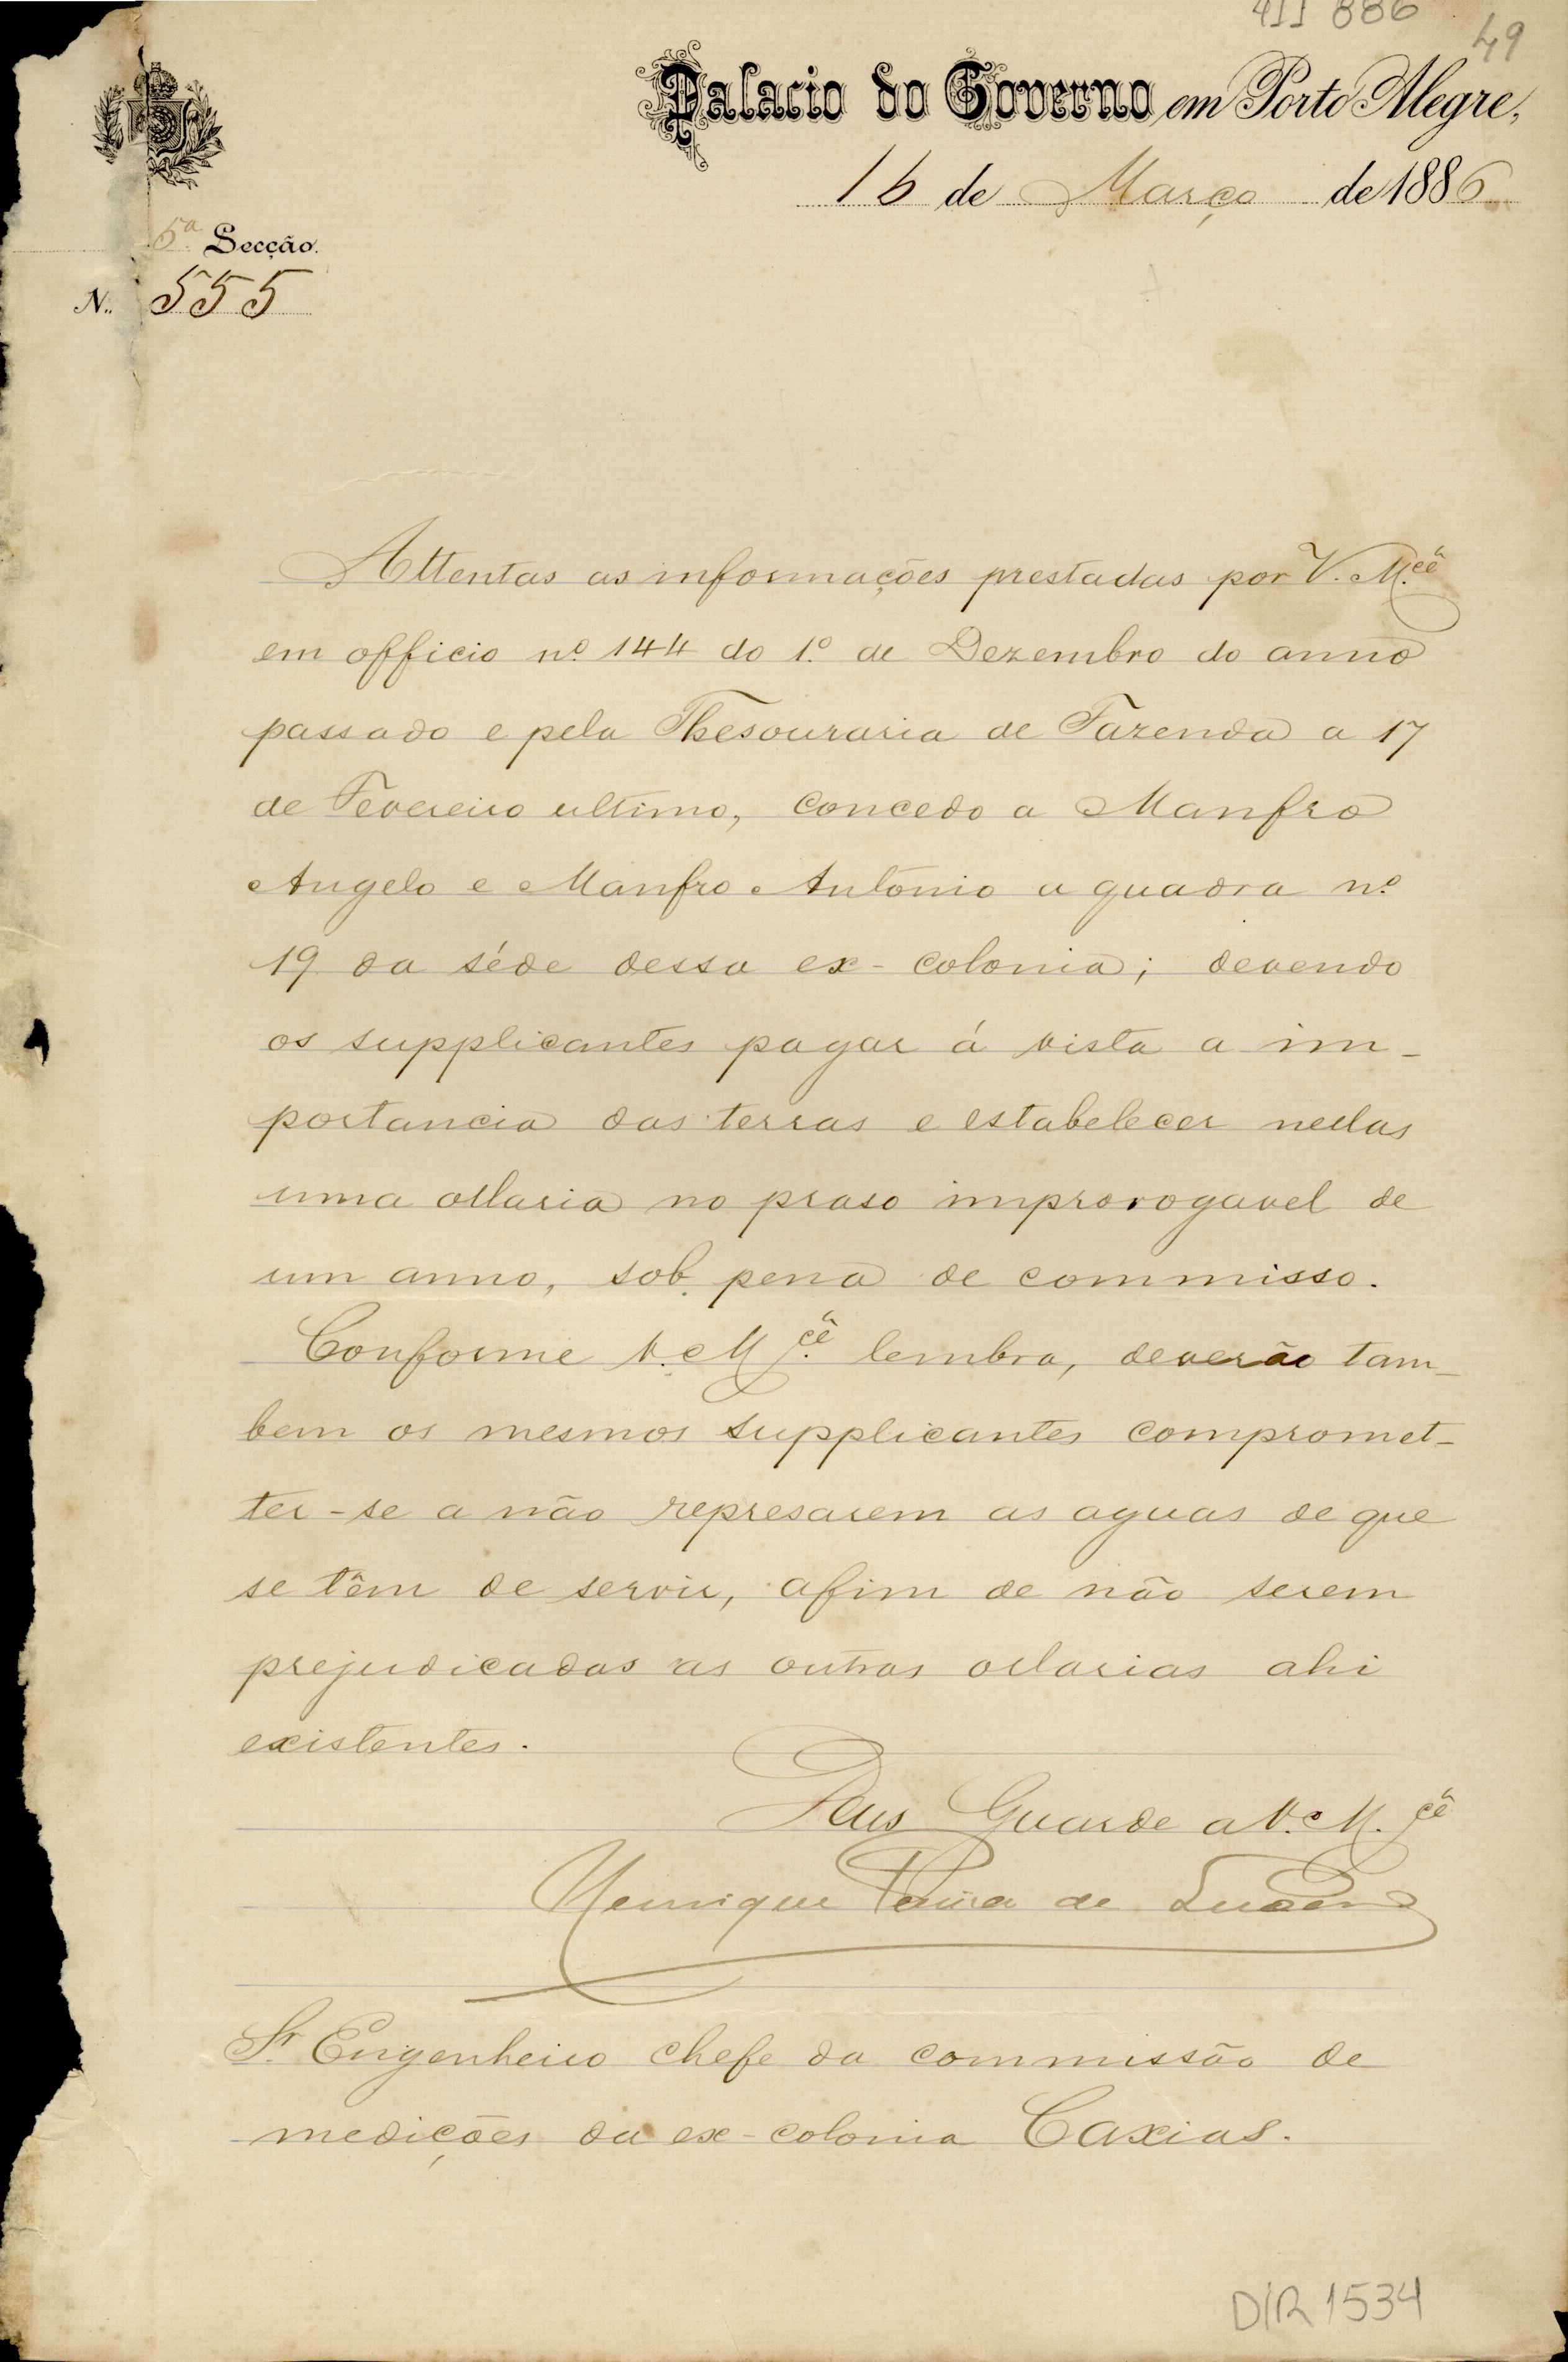 886
49
Palacio do Governo em Porto Alegre,
16 de Março de 1886
5ª Secção.
N. 555
Attentas as informações prestadas por V. M.cê
em officio nº 144 do 1º de Dezembro do anno
passado e pela Thesouraria de Fazenda a 17
de Fevereiro ultimo, concedo a Manfro
Angelo e Manfro Antonio a quadra nº
19 da séde dessa ex-colonia; devendo
os supplicantes pagar á vista a im-
portancia das terras e estabelecer nellas
uma ollaria no praso improrogavel de
um anno, sob pena de commisso.
Conforme V. M.cê lembra, deverão tam-
bem os mesmos supplicantes compromet-
ter-se a não represarem as aguas de que
se têm de servir, afim de não serem
prejudicadas as outras ollarias ahi
existentes.
Deus Guarde a V. M.cê
Henrique Pereira de Lucena
Sr. Engenheiro chefe da commissão de
medições da ex-colonia Caxias.
DIR 1534